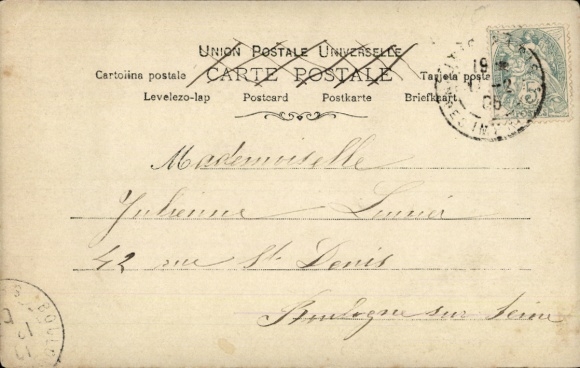 UNION POSTALE UNIVERSELLE
Cartolina postale CARTE POSTALE Tarjeta posta
Levelezo-lap Postcard Postkarte Briefkaart
19
-2
05
Mademoiselle
Julienne
42 rue St Denis
Boulogne sur Seine
BOULO
12